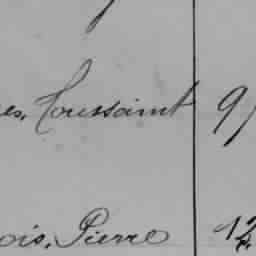 es, Toussaint 9
ois, Pierre 12